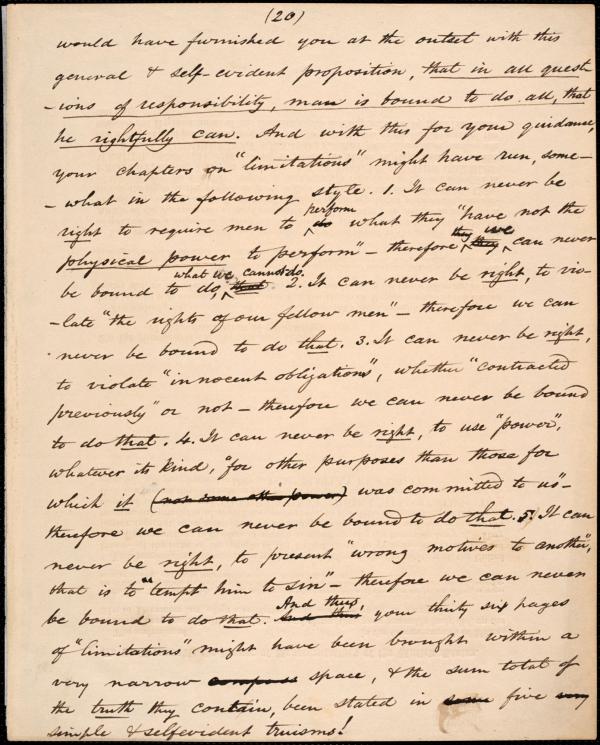 (20)
would have furnished you at the outset with this
general & self-evident proposition, that in all quest-
-ions of responsibility, man is bound to do all, that
he rightfully can. And with this for your guidance,
your chapters on "limitations" might have run, some-
-what in the following style. 1. It can never be
perform
right to require men to do what they "have not the
they we
physical power to perform" – therefore they can never
what we cannot do.
be bound to do, that. 2. It can never be right, to vio-
-late "the rights of our fellow men" – therefore we can
never be bound to do that. 3. It can never be right,
to violate "innocent obligations", whether "contracted
previously" or not – therefore we can never be bound
to do that. 4. It can never be right, to use "power",
whatever its kind, "for other purposes than those for
which it was committed to us" –
therefore we can never be bound to do that. 5. It can
never be right, to present "wrong motives to another",
that is to "tempt him to sin" – therefore we can never
And thus,
be bound to do that. And thus, your thirty six pages
of "limitations" might have been brought within a
very narrow compass space, & the sum total of
the truth they contain, been stated in some five very
simple & selfevident truisms!